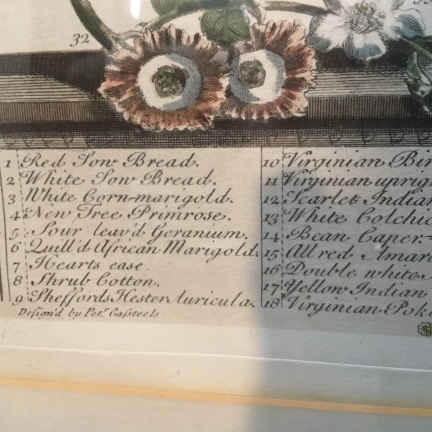 32
1 Red Sow Bread.
2 White Sow Bread.
3 White Corn-marigold.
4 New Tree Primrose.
5 Sour leav'd Geranium.
6 Quill'd African Marigold.
7 Hearts ease.
8 Shrub Cotton.
9 Sheffords Hester Auricula.
Design'd by Pet.r Casteels
10 Virginian Bir
11 Virginian uprig
12 Scarlet Indian
13 White Colchic
14 Bean Caper-
15 All red Amar
16 Double white
17 Yellow Indian
18 Virginian Pok